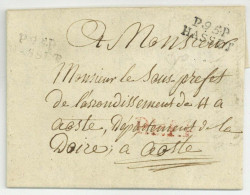 P.95.P
HASSELT
A Monsieur
Monsieur le Sous prefet
de l'arondissement de
aoste, Departement de la
Doire, a Aoste